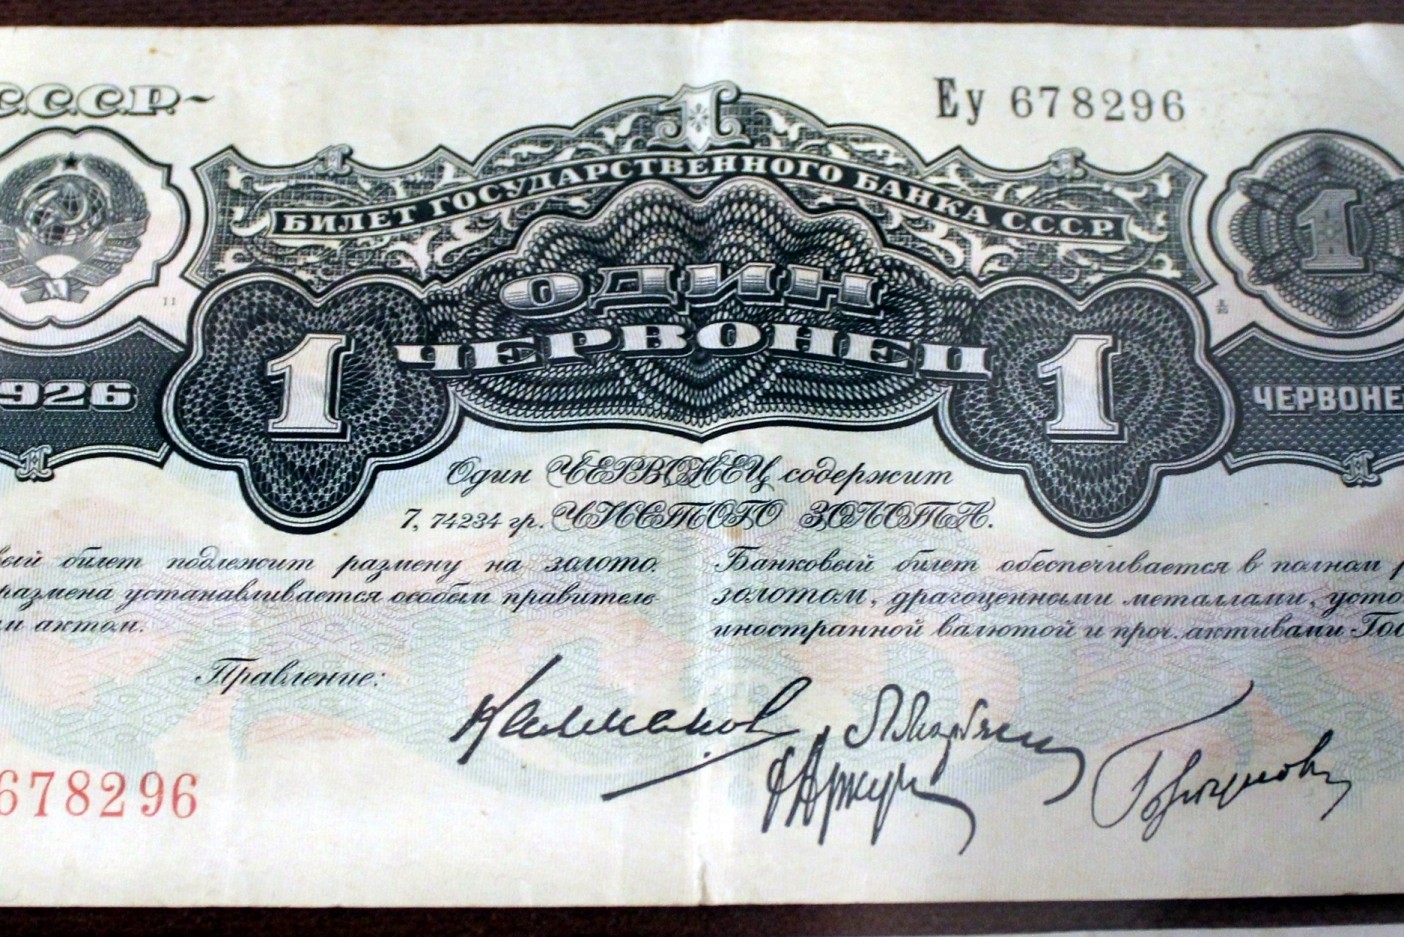 С.С.С.Р.
Еу 678296
1
БИЛЕТ ГОСУДАРСТВЕННОГО БАНКА С.С.С.Р.
1
11
ОДИН
ЧЕРВОНЕЦ
1
1
926
ЧЕРВОНЕ
Один ЧЕРВОНЕЦ содержит
7, 74234 гр. ЧИСТОГО ЗОЛОТА.
вый билет подлежит размену на золото.
размена устанавливается особым правитель-
м актом.
Банковый билет обеспечивается в полном р
золотом, драгоценными металлами, усто
иностранной валютой и проч. активами Гос
Правление:
678296